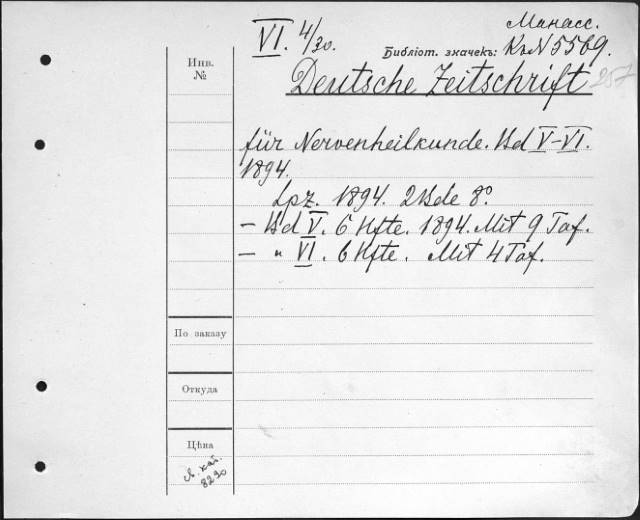 VI. 4/30.
Манасс.
Библіот. значекъ: Кн N 5569.
Инв. №
Deutsche Zeitschrift
für Nervenheilkunde. Bd V-VI.
1894.
Lpz. 1894. 2 Bde 8°.
— Bd V. 6 Hfte. 1894. Mit 9 Taf.
— " VI. 6 Hfte. Mit 4 Taf.
По заказу
Откуда
Цѣна
кат.
8230